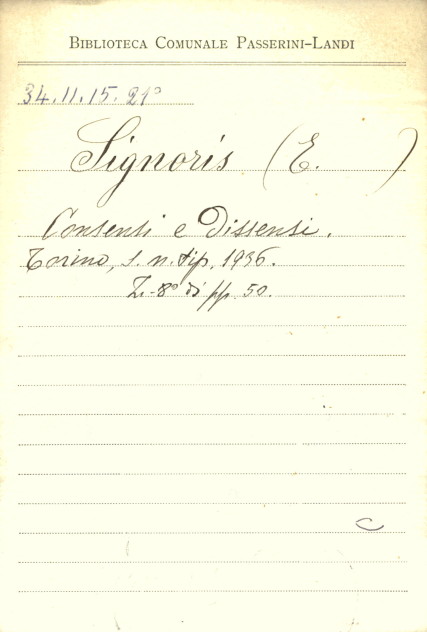 BIBLIOTECA COMUNALE PASSERINI-LANDI
34.11.15.21°
Signoris (E. )
Consensi e Dissensi.
Torino, s. n. tip, 1936.
in-8° di pp. 50.
C